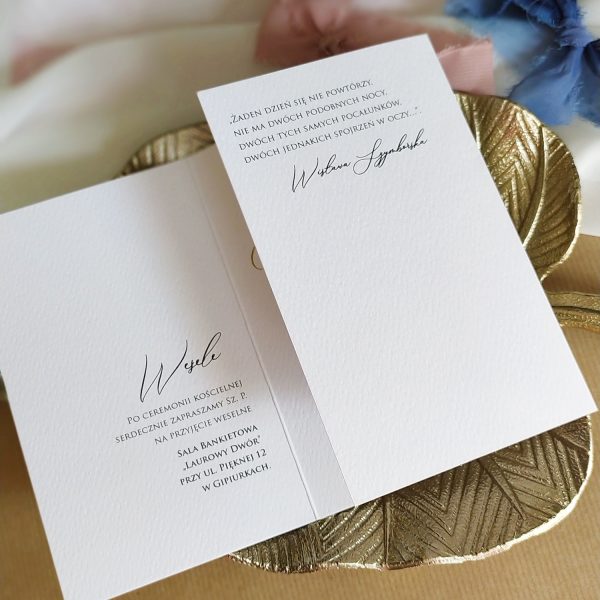 „Żaden dzień się nie powtórzy,
nie ma dwóch podobnych nocy,
dwóch tych samych pocałunków,
dwóch jednakich spojrzeń w oczy...”
Wisława Szymborska
Wesele
Po ceremonii kościelnej
serdecznie zapraszamy Sz. P.
na przyjęcie weselne
Sala Bankietowa
„Laurowy Dwór”
przy ul. Pięknej 12
w Gipiurkach.